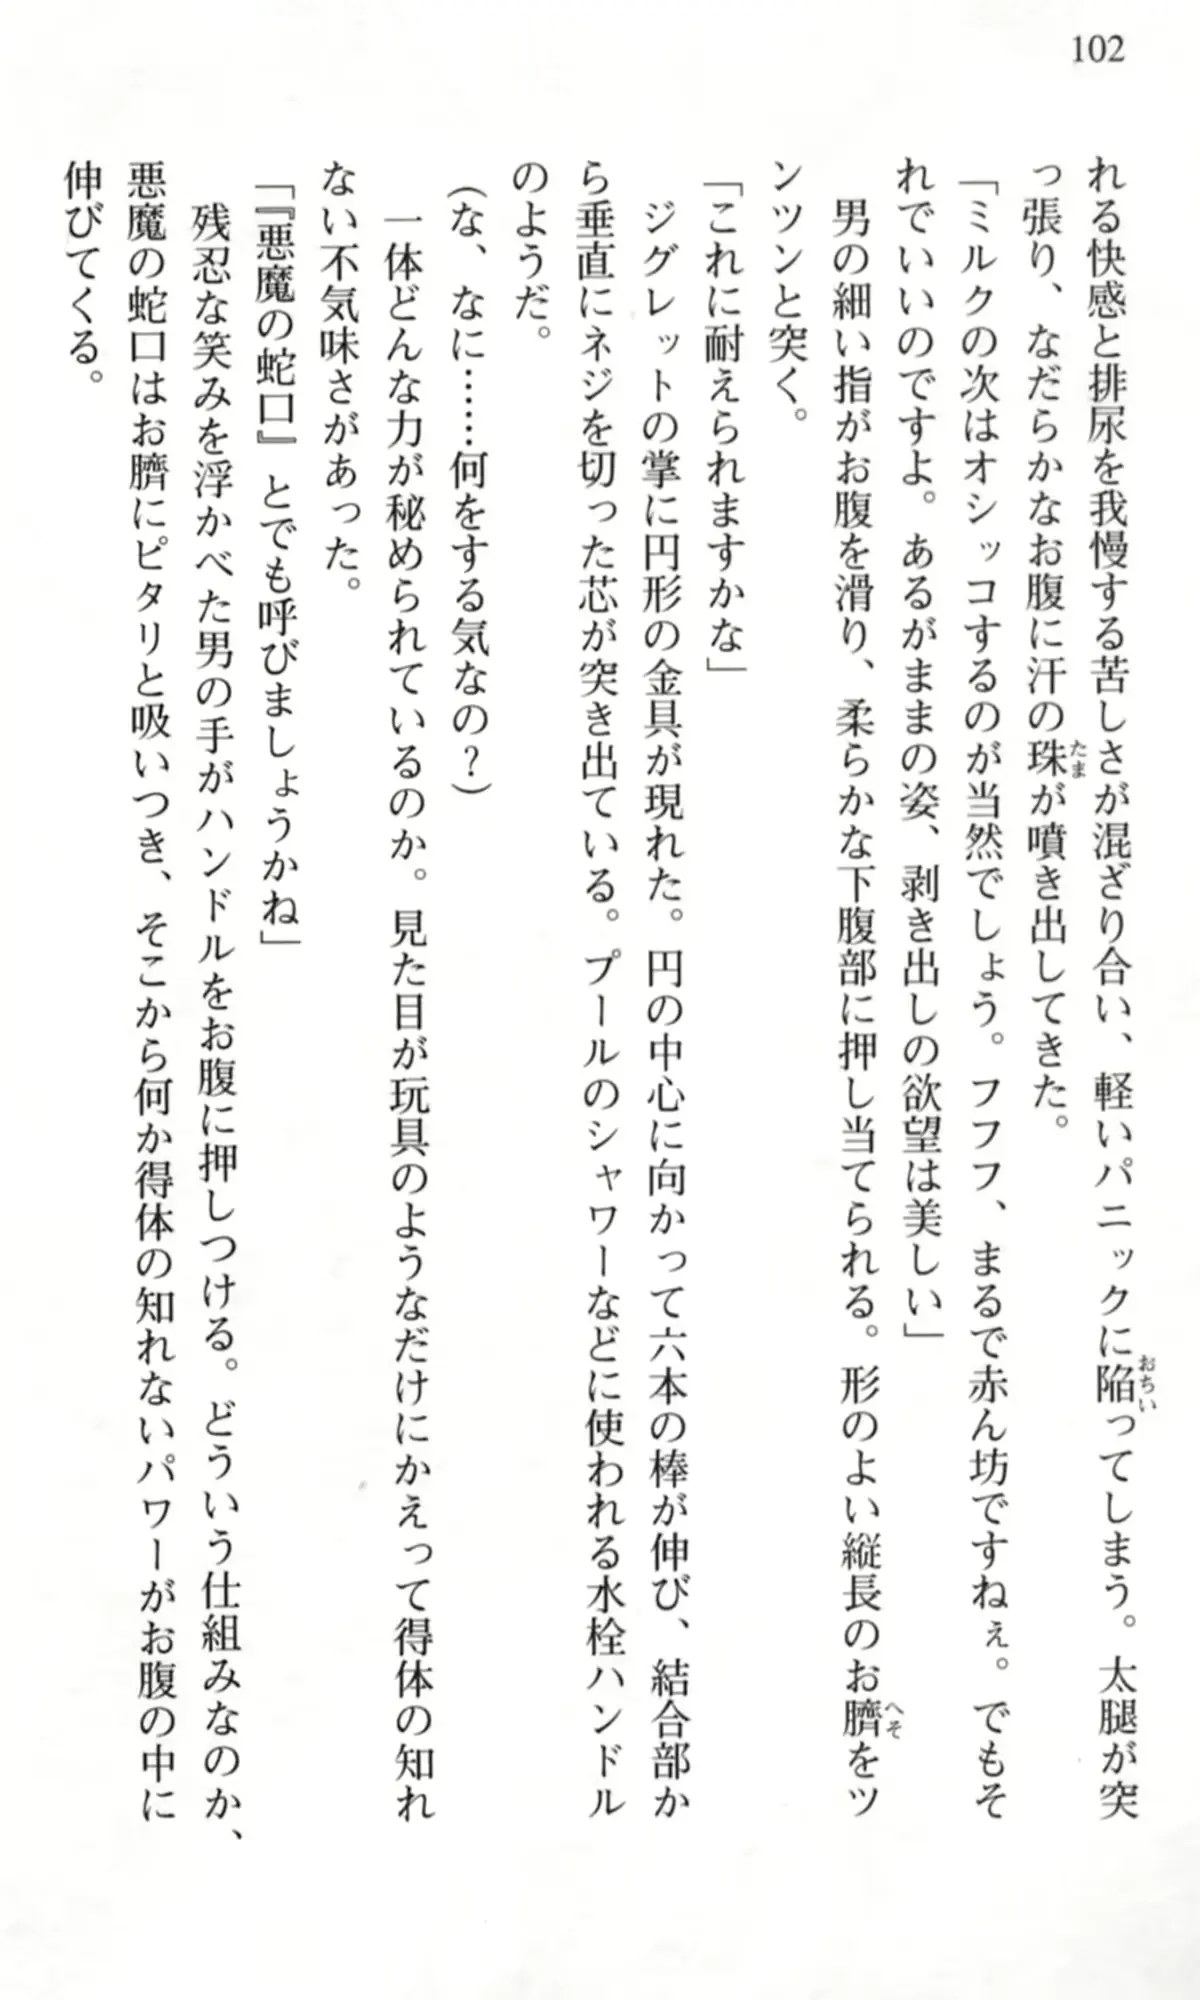 102
れる快感と排尿を我慢する苦しさが混ざり合い、軽いパニックに陥ってしまう。太腿が突
っ張り、なだらかなお腹に汗の珠が噴き出してきた。
「ミルクの次はオシッコするのが当然でしょう。フフフ、まるで赤ん坊ですねぇ。でもそ
れでいいのですよ。あるがままの姿、剥き出しの欲望は美しい」
男の細い指がお腹を滑り、柔らかな下腹部に押し当てられる。形のよい縦長のお臍をツ
ンツンと突く。
「これに耐えられますかな」
ジグレットの掌に円形の金具が現れた。円の中心に向かって六本の棒が伸び、結合部か
ら垂直にネジを切った芯が突き出ている。プールのシャワーなどに使われる水栓ハンドル
のようだ。
(な、なに……何をする気なの？)
一体どんな力が秘められているのか。見た目が玩具のようなだけにかえって得体の知れ
ない不気味さがあった。
「『悪魔の蛇口』とでも呼びましょうかね」
残忍な笑みを浮かべた男の手がハンドルをお腹に押しつける。どういう仕組みなのか、
悪魔の蛇口はお臍にピタリと吸いつき、そこから何か得体の知れないパワーがお腹の中に
伸びてくる。